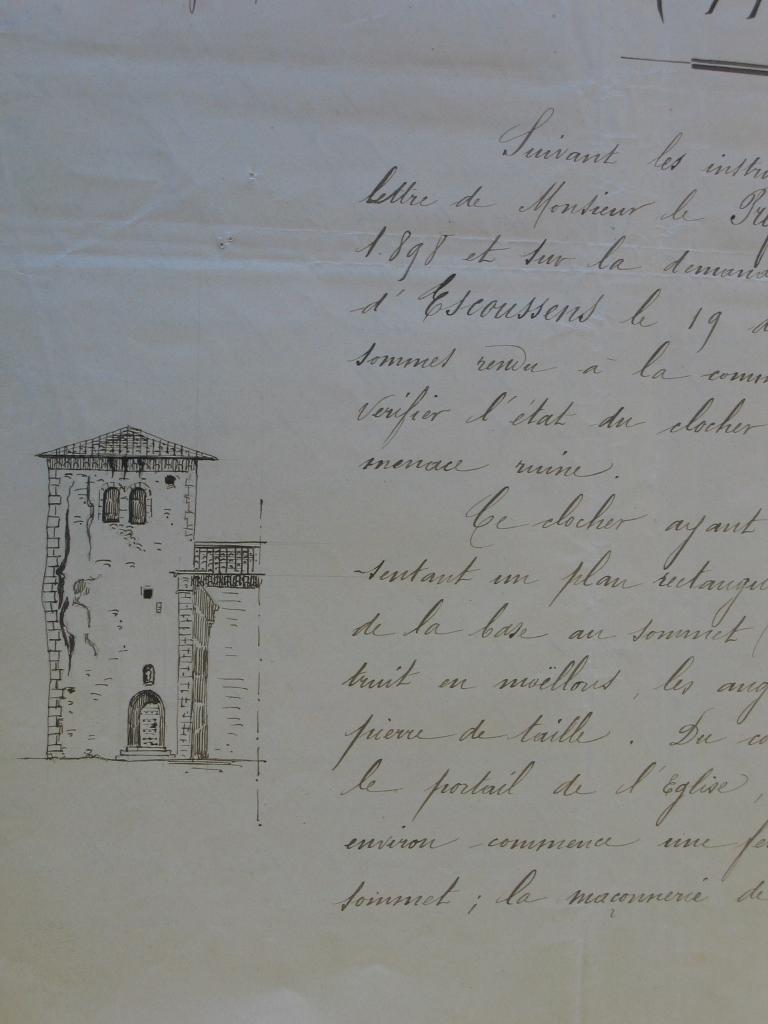 Suivant les instru
lettre de Monsieur le Préf
1.898 et sur la demand
d' Escoussens le 19 d
sommes rendu à la comm
vérifier l'état du clocher
menace ruine.
Ce clocher ayant
-sentant un plan rectangu
de la base au sommet (
truit en moëllons, les ang
pierre de taille. Du co
le portail de l'Eglise,
environ commence une fe
sommet ; la maçonnerie de